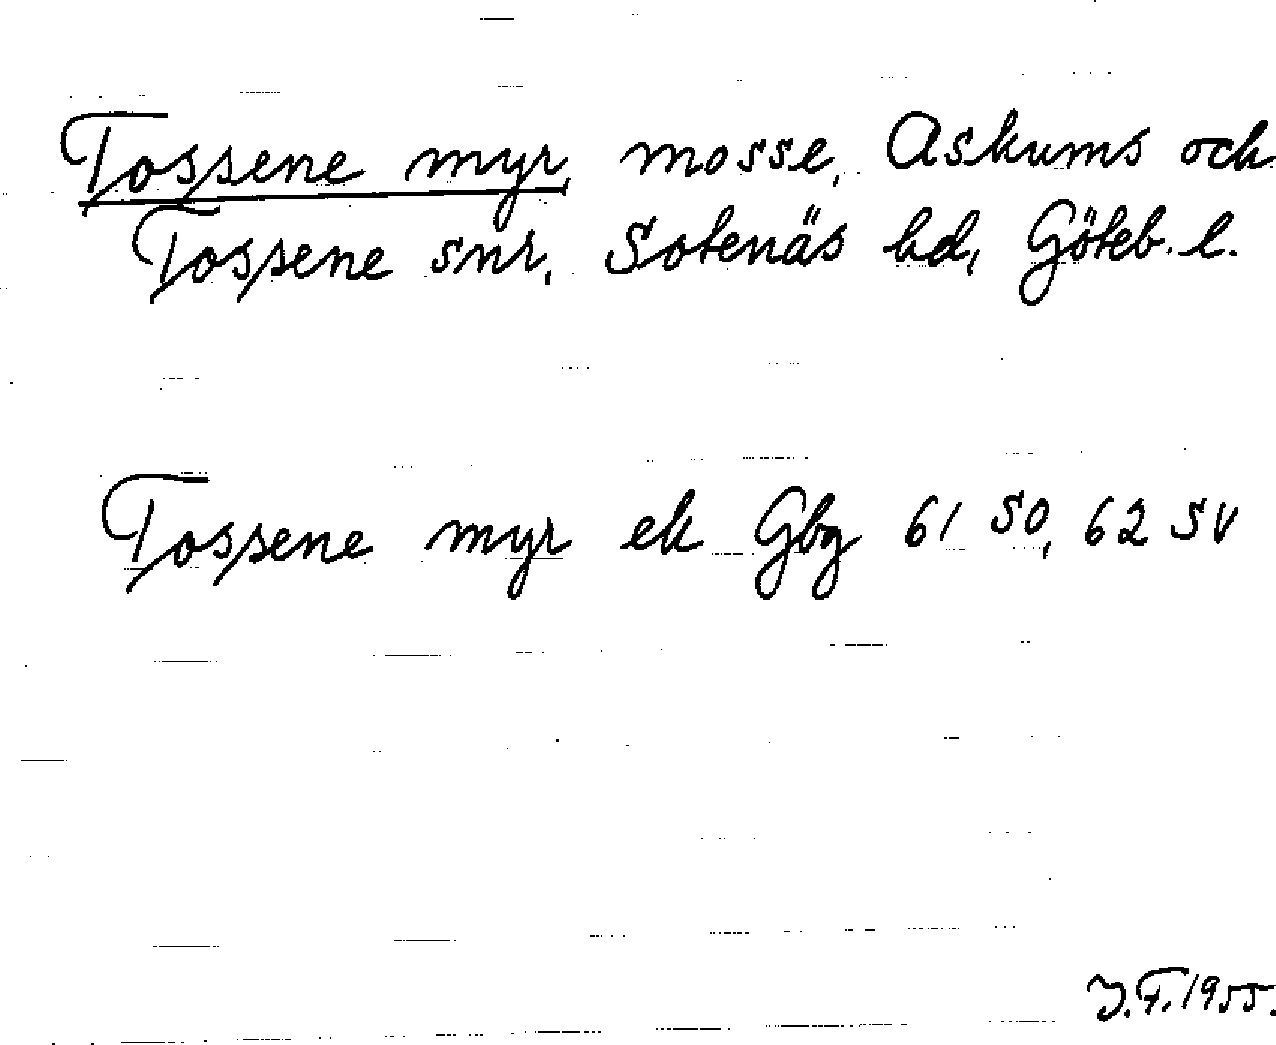 Tossene myr, mosse, Askums och
Tossene snr, Sotenäs hd, Göteb. l.
Tossene myr ek Gbg 61 SO, 62 SV
J.F. 1955.